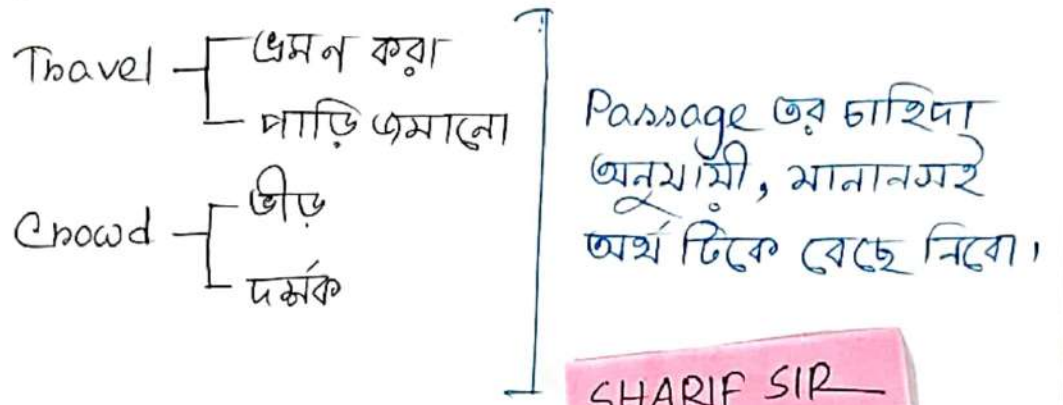 Travel
ভ্রমন করা
পাড়ি জমানো
Crowd
ভীড়
দর্শক
Passage এর চাহিদা
অনুযায়ী, মানানসই
অর্থ টিকে বেছে নিবো।
SHARIF SIR